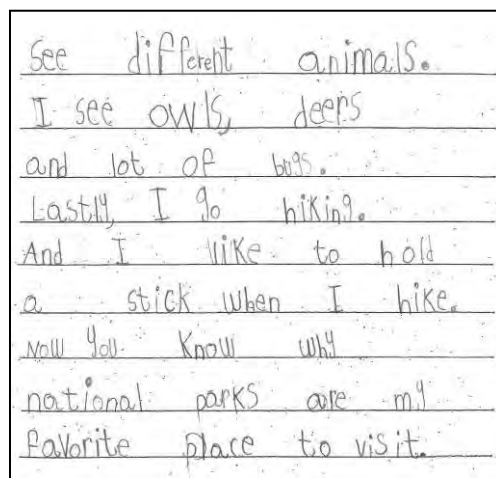 See different animals.
I see owls, deers
and lot of bugs.
Lastly, I go hiking.
And I like to hold
a stick when I hike.
Now you know why
national parks are my
favorite place to visit.